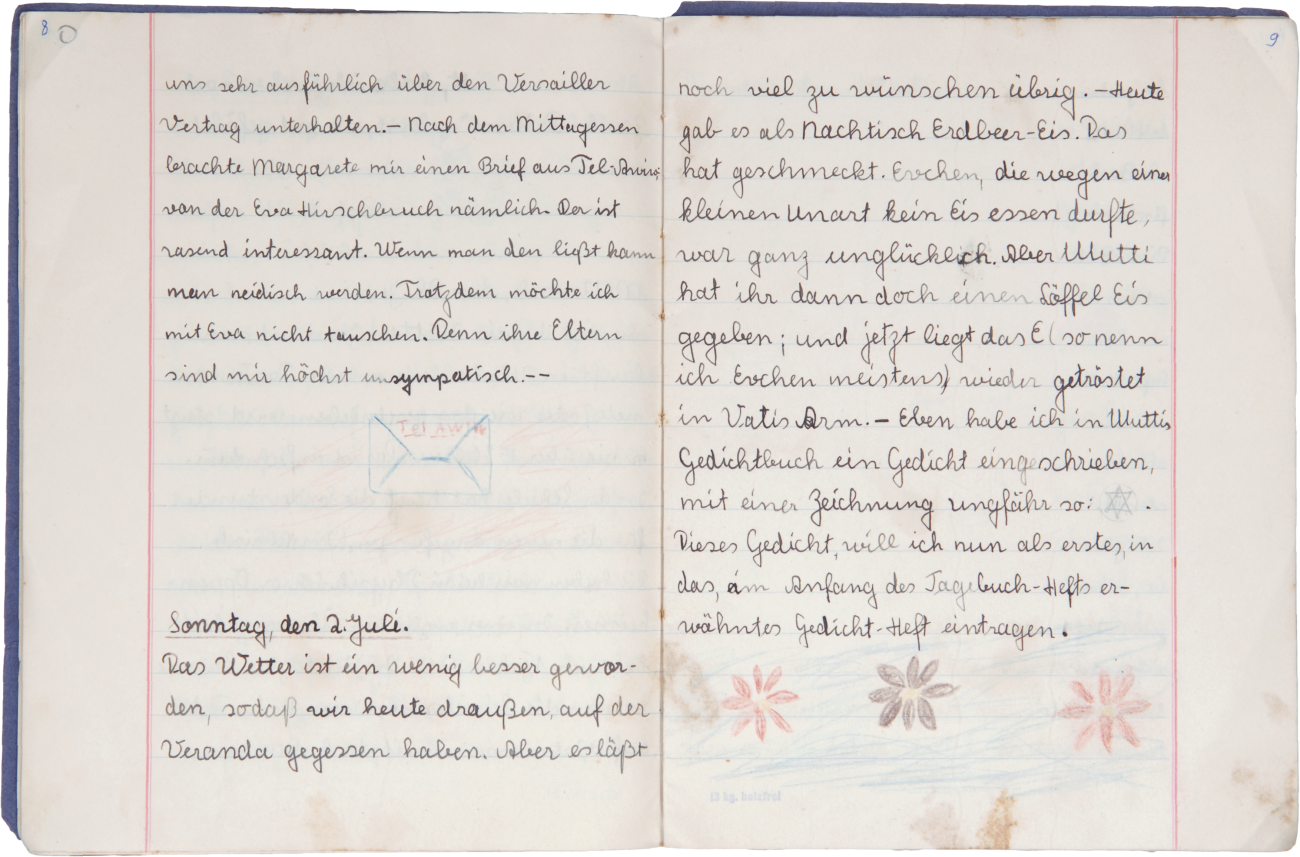 8
uns sehr ausführlich über den Versailler
Vertrag unterhalten. – Nach dem Mittagessen
brachte Margarete mir einen Brief aus Tel-Awiw,
von der Eva Hirschbruch nämlich. Der ist
rasend interessant. Wenn man den ließt kann
man neidisch werden. Trotzdem möchte ich
mit Eva nicht tauschen. Denn ihre Eltern
sind mir höchst unsympatisch. --
Tel Awiw
Sonntag, den 2. Juli.
Das Wetter ist ein wenig besser gewor-
den, sodaß wir heute draußen, auf der
Veranda gegessen haben. Aber es läßt
9
noch viel zu wünschen übrig. – Heute
gab es als Nachtisch Erdbeer-Eis. Das
hat geschmeckt. Evchen, die wegen einer
kleinen Unart kein Eis essen durfte,
war ganz unglücklich. Aber Mutti
hat ihr dann doch einen Löffel Eis
gegeben; und jetzt liegt das E (so nenn
ich Evchen meistens) wieder getröstet
in Vatis Arm. – Eben habe ich in Muttis
Gedichtbuch ein Gedicht eingeschrieben,
mit einer Zeichnung ungfähr so: .
Dieses Gedicht, will ich nun als erstes, in
das, am Anfang des Tagebuch-Hefts er-
wähntes Gedicht-Heft eintragen.
13 kg. holzfrei